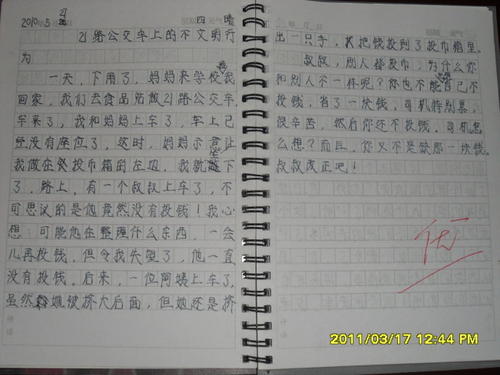 2010.5 四 晴
21路公交车上的不文明行
为
一天,下雨了,妈妈来学校接我
回家,我们去食品站做21路公交车,
车来了,我和妈妈上车了,车上已
经没有座位了,这时,妈妈示意让
我做在投币箱的左边,我就坐下
了,路上,有一个叔叔上车了,不
可思议的是他竟然没有投钱!我心
想:可能他在整理什么东西,一会
儿再投钱,但令我失望了,他一直
没有投钱,后来,一位阿姨上车了,
虽然她被挤在后面,但她还是挤
出一只手,把钱投到了投币箱里。
叔叔,别人投币,为什么你
和别人不一样呢?你也不能
投钱,省了一块钱,司机特别
很辛苦,然后你还不投钱,司机怎
么想?而且,你又不是缺那一块钱,
叔叔改正吧!
优
2011/03/17 12:44 PM